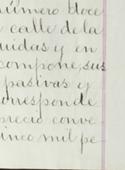 número doce
calle de la
uidas y en
compone, sus
pasivas y
orresponde
precio conve
inco mil pe